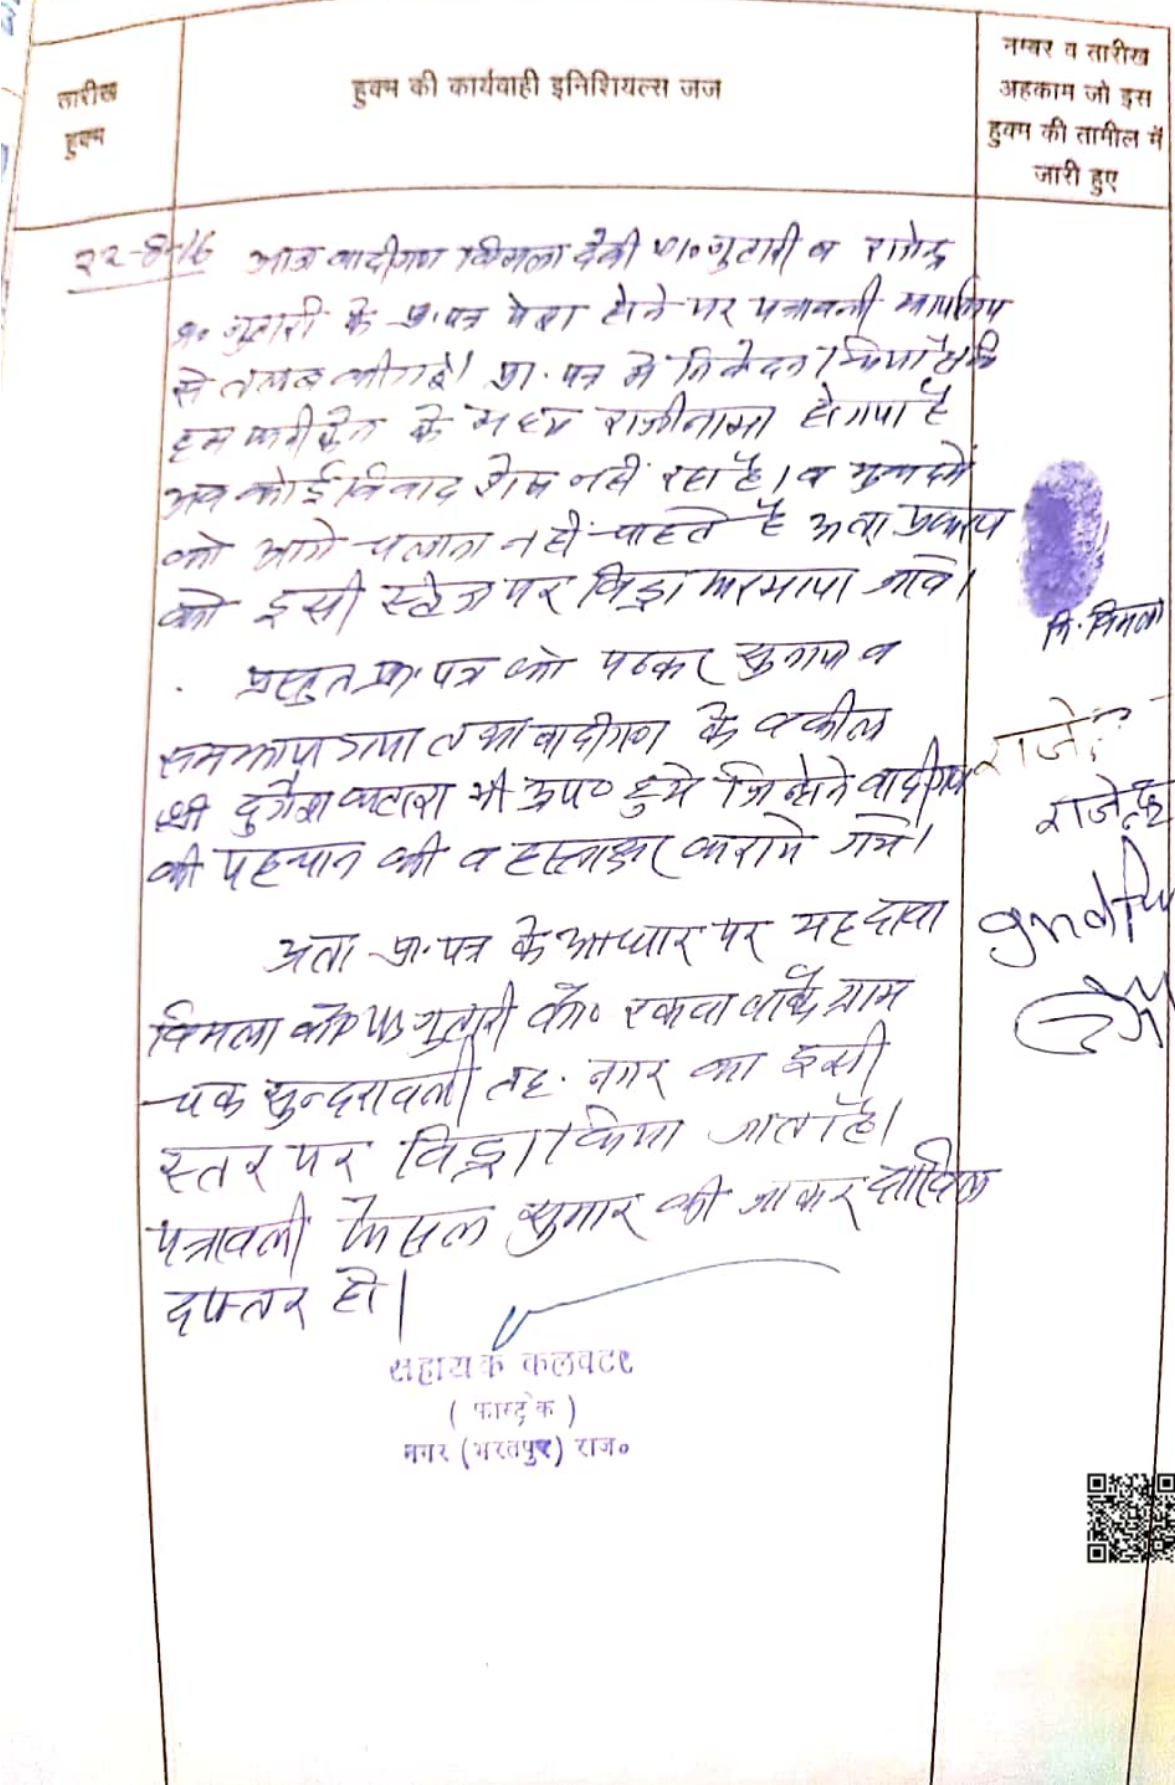 तारीख
हुक्म
हुक्म की कार्यवाही इनिशियल्स जज
नम्बर व तारीख
अहकाम जो इस
हुक्म की तामील में
जारी हुए
२२-8-16 आज वादीगण विमला देवी व राजेन्द्र
के प्रा. पत्र पेश होने पर पत्रावली
से तलब की गई। प्रा. पत्र में निवेदन किया है कि
हम फरीकेन के मध्य राजीनामा हो गया है
अब कोई विवाद शेष नहीं रहा है। व मुकदमें
को आगे चलाना नहीं चाहते है अतः प्रकरण
को इसी स्टेज पर विड्रा फरमाया जावे।
नि. विमला
प्रस्तुत प्रा. पत्र को पढकर सुनाया व
समझाया गया तथा वादीगण के वकील
श्री दुर्गेश कटारा भी उप० हुये जिन्होने वादीगण
की पहचान की व हस्ताक्षर कराये गये।
राजे
राजेन्द्र
अतः प्रा. पत्र के आधार पर यह दावा
विमला रकवा वाके ग्राम
चक सुन्दरावली तह. नगर का इसी
स्तर पर विड्रा किया जाता है।
पत्रावली फैसल सुमार की जाकर दाखिल
दफ्तर हो।
सहायक कलक्टर
( फास्ट्रेक )
नगर (भरतपुर) राज०